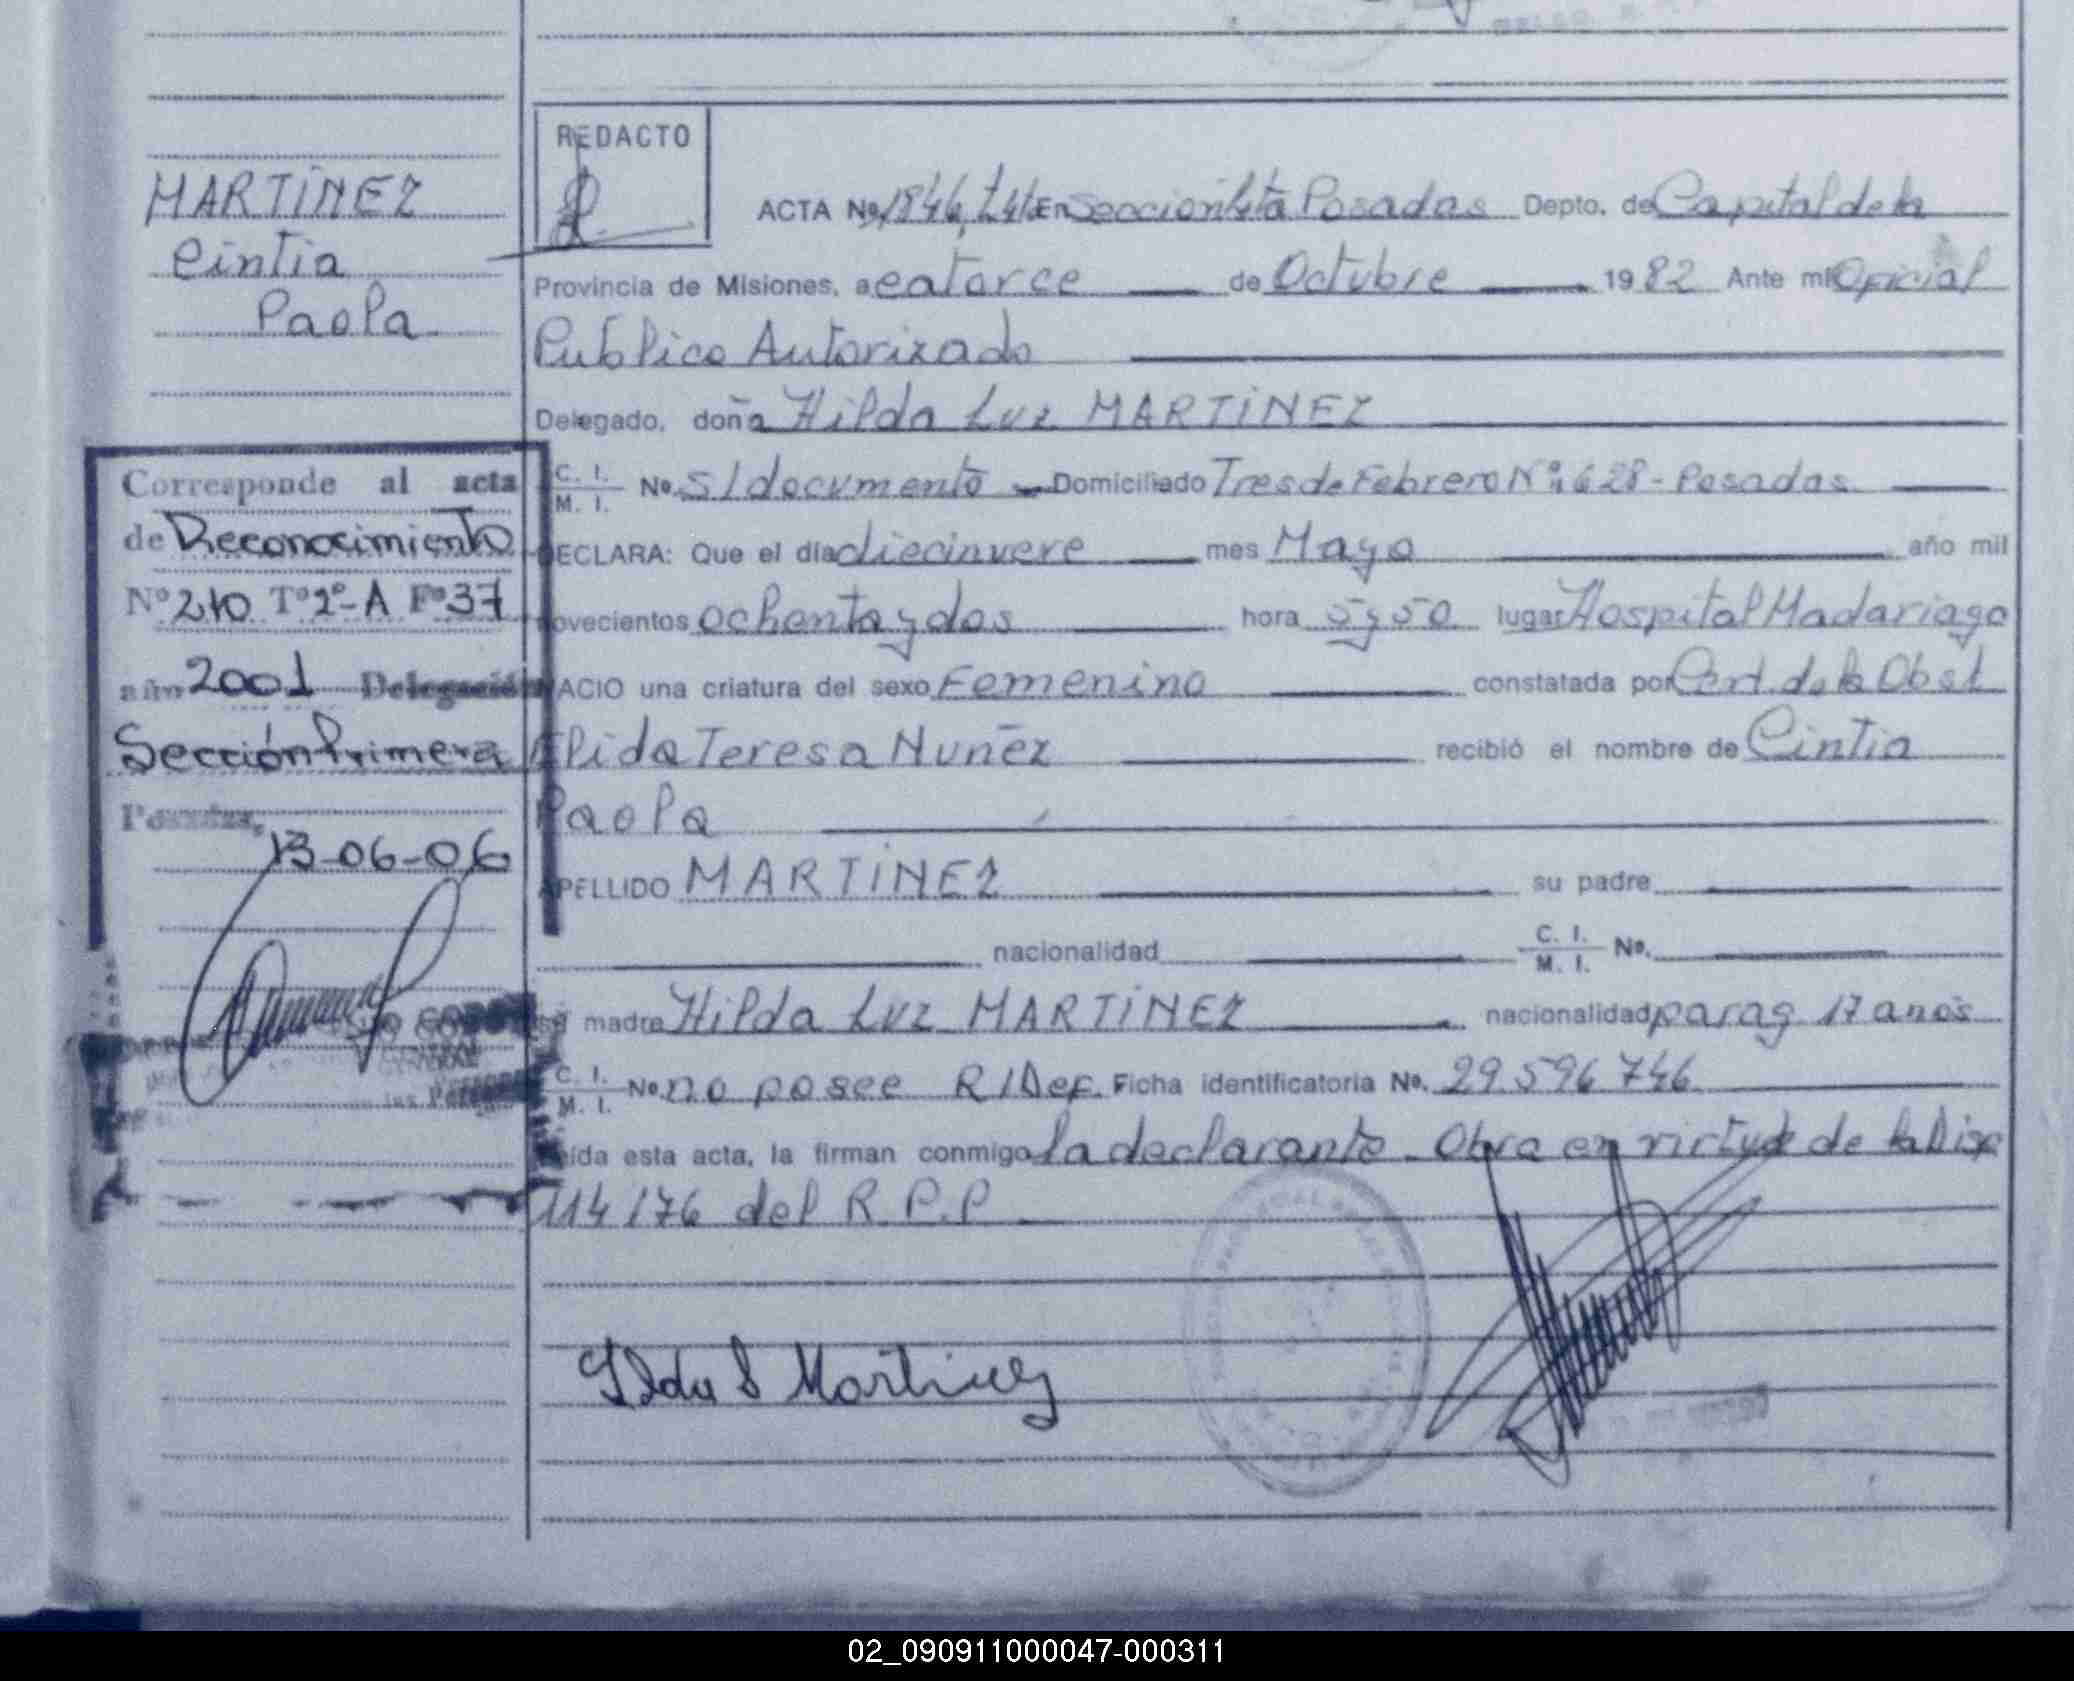 REDACTO
MARTINEZ
Cintia
Paola
ACTA No. 1846, En Sección Posadas Depto. de Capital de la
Provincia de Misiones, a catorce de Octubre 1982 Ante mi Oficial
Publico Autorizado
Delegado, doña Hilda Luz MARTINEZ
C. I. M. I. No. s/documento Domiciliado Tres de Febrero Nº 628 - Posadas
DECLARA: Que el día diecinueve mes Mayo año mil
novecientos ochenta y dos hora 5 y 50 lugar Hospital Madariaga
NACIO una criatura del sexo Femenino constatada por Cert. de la Obst
Elida Teresa Nuñez recibió el nombre de Cintia
Paola
APELLIDO MARTINEZ su padre
nacionalidad C. I. M. I. No.
su madre Hilda Luz MARTINEZ nacionalidad parag 17 años
C. I. M. I. No. no posee R/Def. Ficha identificatoria No. 29 596 746
Leída esta acta, la firman conmigo la declarante. Obra en virtud de la Disp
114/76 del R.P.P
Corresponde al acta
de Reconocimiento
Nº 210 Tº 2º-A Fº 37
año 2001 Delegación
Sección Primera
Posadas,
13-06-06
Ilda L Martinez
02_090911000047-000311